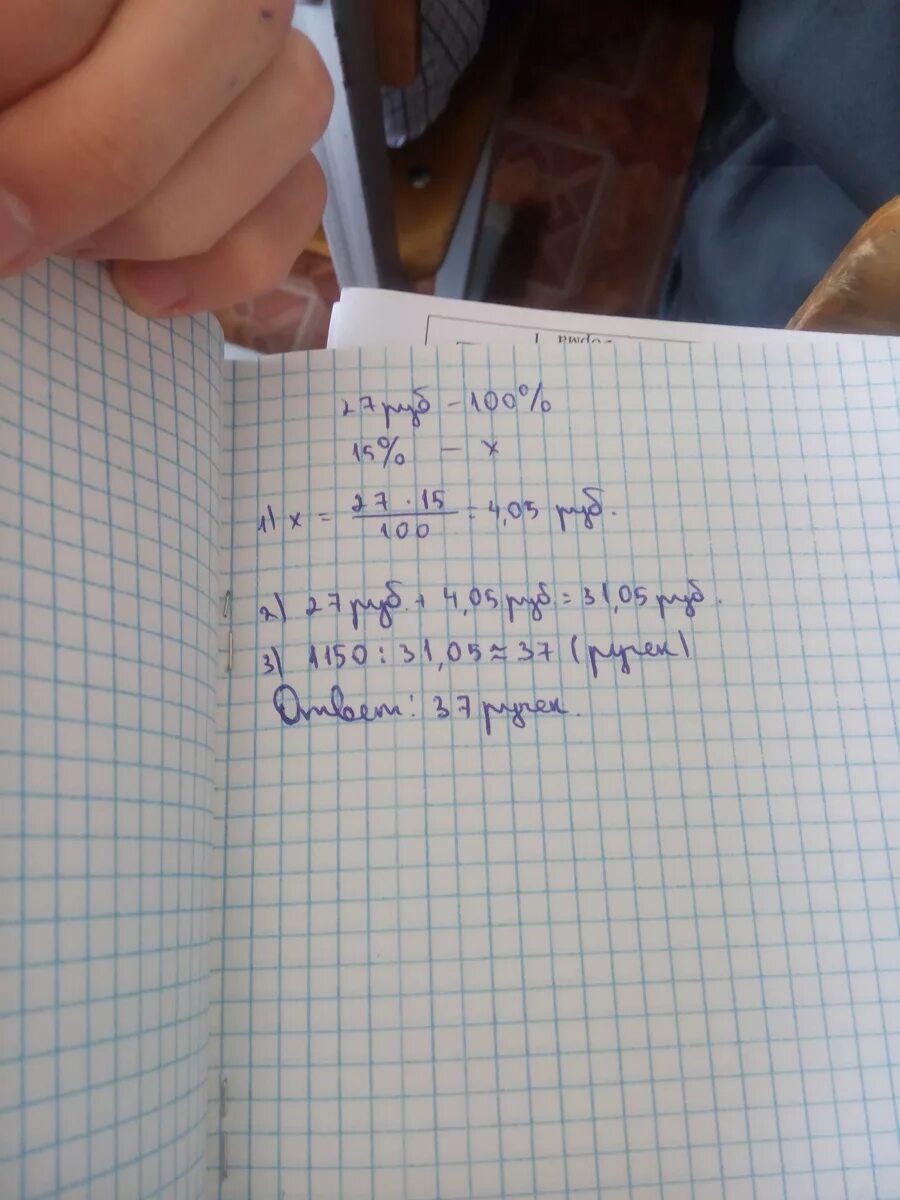 27 руб - 100%
15% - x
1) x = 27 · 15 / 100 = 4,05 руб.
2) 27 руб. + 4,05 руб = 31,05 руб.
3) 1150 : 31,05 ≈ 37 (ручек)
Ответ: 37 ручек.